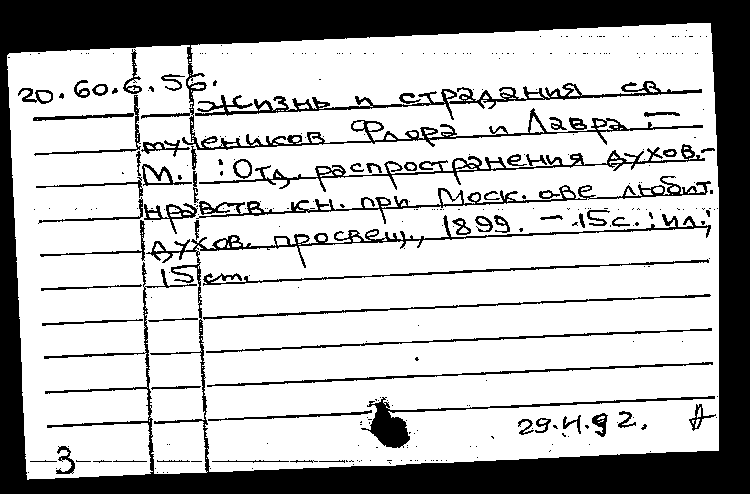 20.60.6.56.
Жизнь и страдания св.
мучеников Флора и Лавра. —
М. : Отд. распространения духов.-
нравств. кн. при Моск. о-ве любит.
духов. просвещ., 1899. — 15 с. : ил.;
15 см.
3